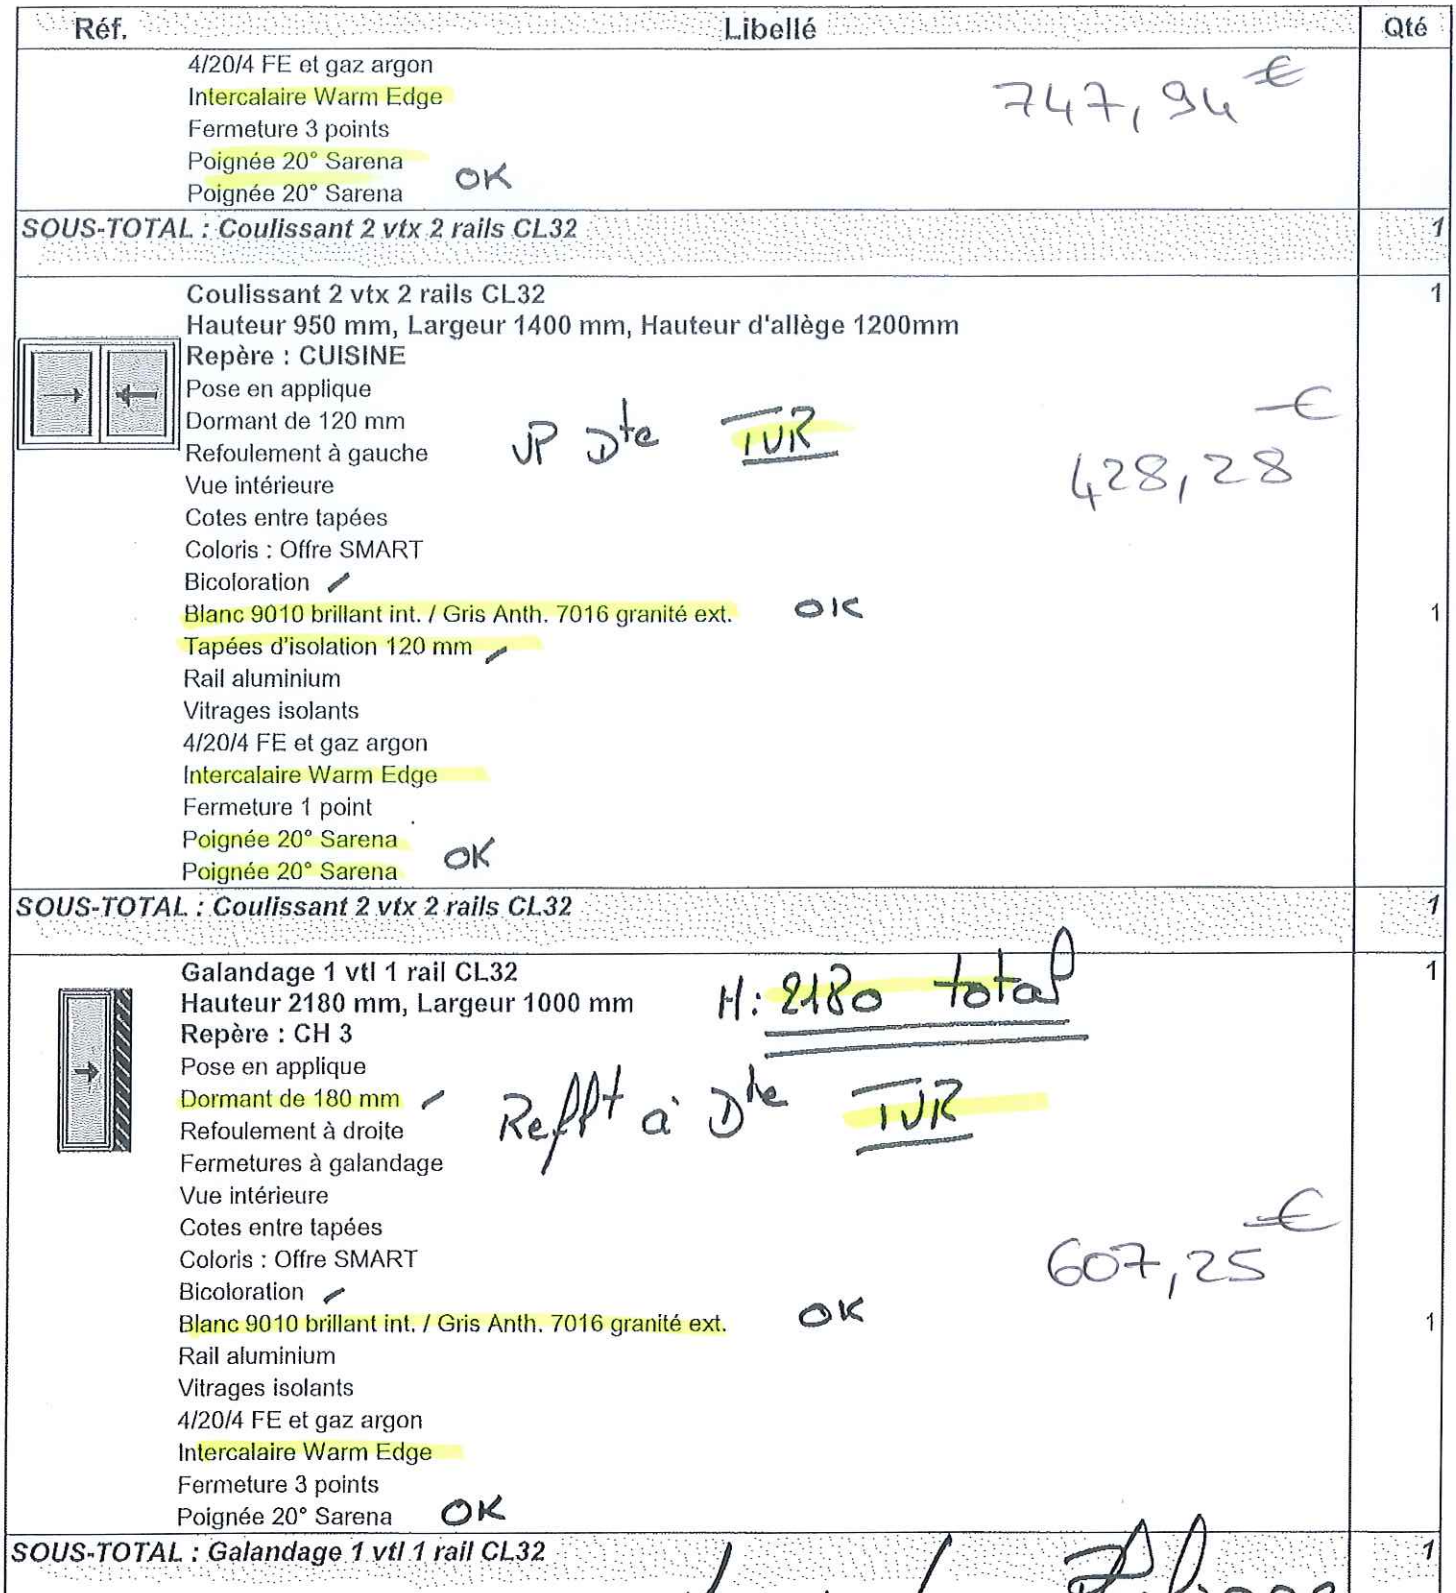 Réf. Libellé Qté
4/20/4 FE et gaz argon
747,94 €
Intercalaire Warm Edge
Fermeture 3 points
Poignée 20° Sarena
OK
Poignée 20° Sarena
SOUS-TOTAL : Coulissant 2 vtx 2 rails CL32 1
Coulissant 2 vtx 2 rails CL32 1
Hauteur 950 mm, Largeur 1400 mm, Hauteur d'allège 1200mm
Repère : CUISINE
Pose en applique
Dormant de 120 mm
VP Dte TVR
€
Refoulement à gauche
428,28
Vue intérieure
Cotes entre tapées
Coloris : Offre SMART
Bicoloration
Blanc 9010 brillant int. / Gris Anth. 7016 granité ext. OK 1
Tapées d'isolation 120 mm
Rail aluminium
Vitrages isolants
4/20/4 FE et gaz argon
Intercalaire Warm Edge
Fermeture 1 point
Poignée 20° Sarena
OK
Poignée 20° Sarena
SOUS-TOTAL : Coulissant 2 vtx 2 rails CL32 1
Galandage 1 vtl 1 rail CL32 1
Hauteur 2180 mm, Largeur 1000 mm H: 2180 total
Repère : CH 3
Pose en applique
Dormant de 180 mm
Refft à Dte TVR
Refoulement à droite
Fermetures à galandage
Vue intérieure
Cotes entre tapées
607,25 €
Coloris : Offre SMART
Bicoloration
Blanc 9010 brillant int. / Gris Anth. 7016 granité ext. OK 1
Rail aluminium
Vitrages isolants
4/20/4 FE et gaz argon
Intercalaire Warm Edge
Fermeture 3 points
Poignée 20° Sarena OK
SOUS-TOTAL : Galandage 1 vtl 1 rail CL32 1